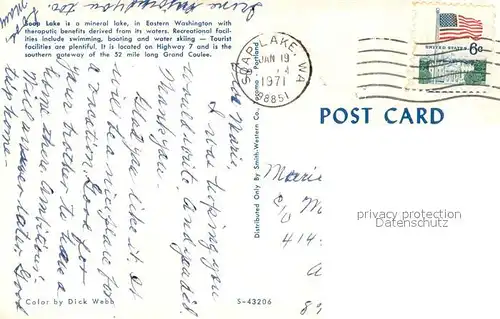 Soap Lake is a mineral lake, in Eastern Washington with
theraputic benefits derived from its waters. Recreational facil-
ities include swimming, boating and water skiing — Tourist
facilities are plentiful. It is located on Highway 7 and is the
southern gateway of the 52 mile long Grand Coulee.
you too.
Dear Marie,
I was hoping you
would write. And you did.
Thank you.
Glad you like it. It
will be a nice place for
a vacation. Good for
your mother to have a
home there. Ambitious!
Will answer later. Good
trip home.
Color by Dick Webb
S-43206
Distributed Only By Smith-Western Co., Tacoma - Portland
SOAP LAKE, WA
JAN 19
1971
98851
UNITED STATES 6c
POST CARD
Marie
c/o M
414
privacy protection
description